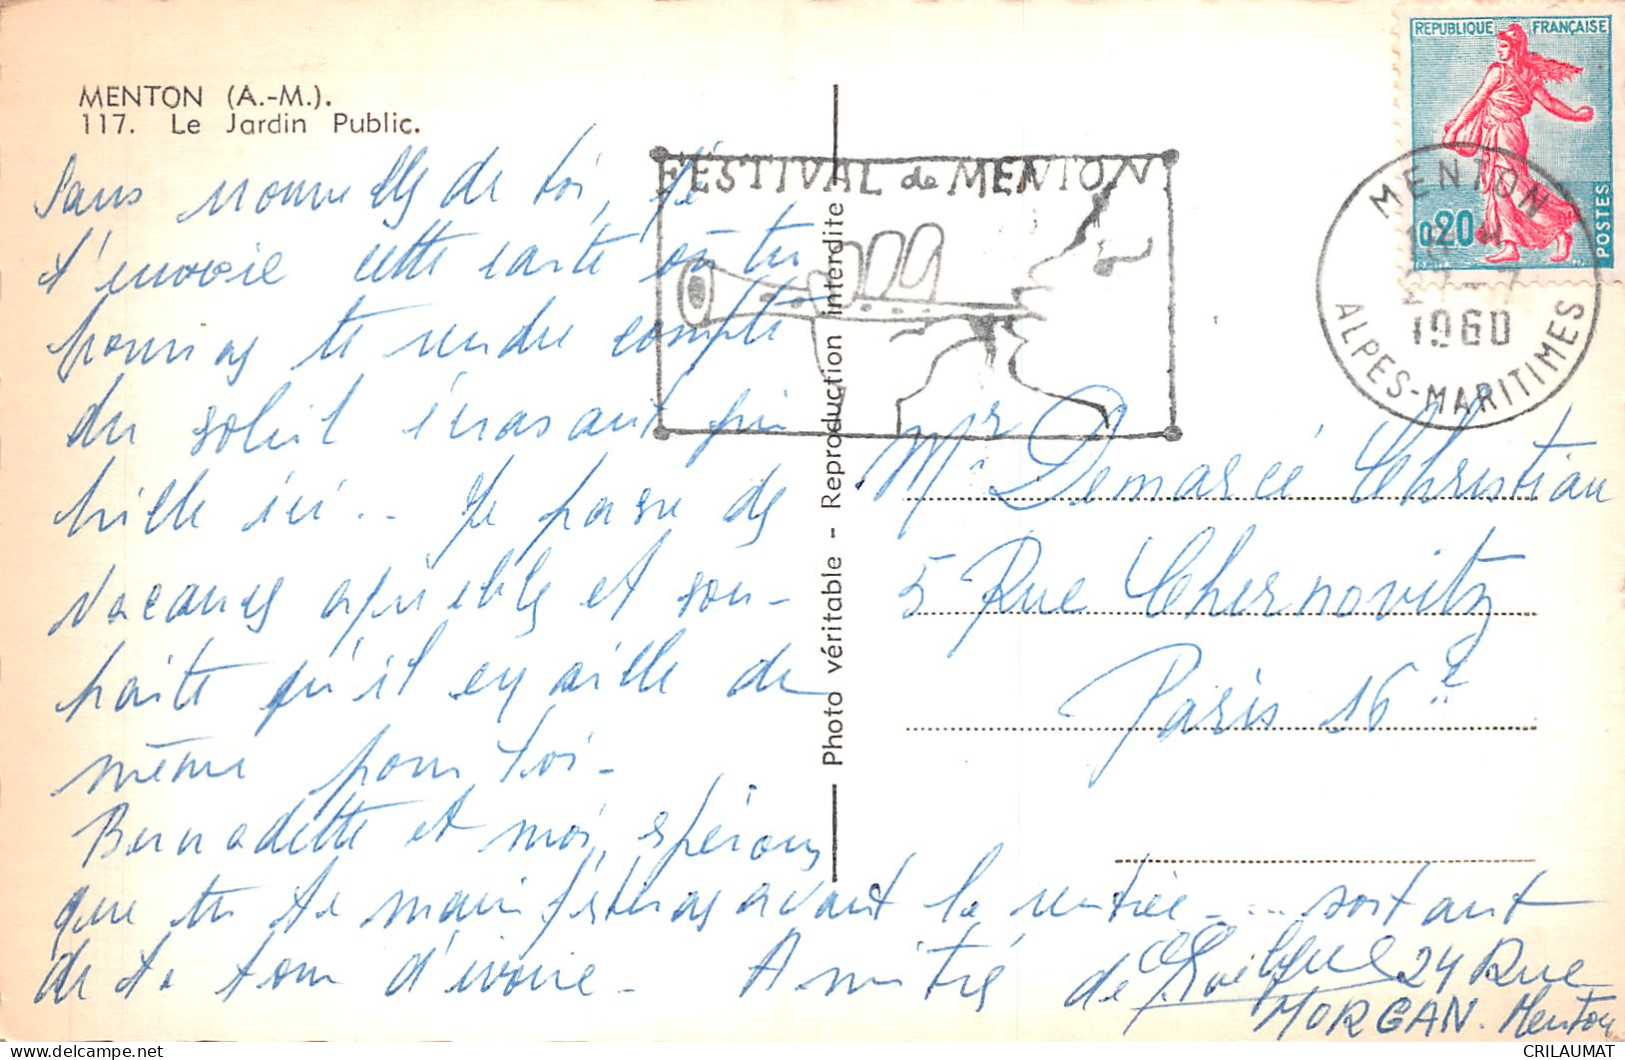 MENTON (A.-M.).
117. Le Jardin Public.
Sans nouvelles de toi, je
t'envoie cette carte où tu
pourras te rendre compte
du soleil écrasant qui
brille ici.. Je passe des
vacances agréables et sou-
haite qu'il en aille de
même pour toi -
Bernadette et moi, espérons
que tu te manifesteras avant la rentrée - ... sortant
de ta tour d'ivoire. Amitié de
24 Rue
MORGAN. Menton
Photo véritable - Reproduction interdite
FESTIVAL de MENTON
REPUBLIQUE FRANÇAISE
0,20
POSTES
MENTON
1960
ALPES-MARITIMES
Mr Demarcé Christian
5 Rue Chernovitz
Paris 16e
CRILAUMAT